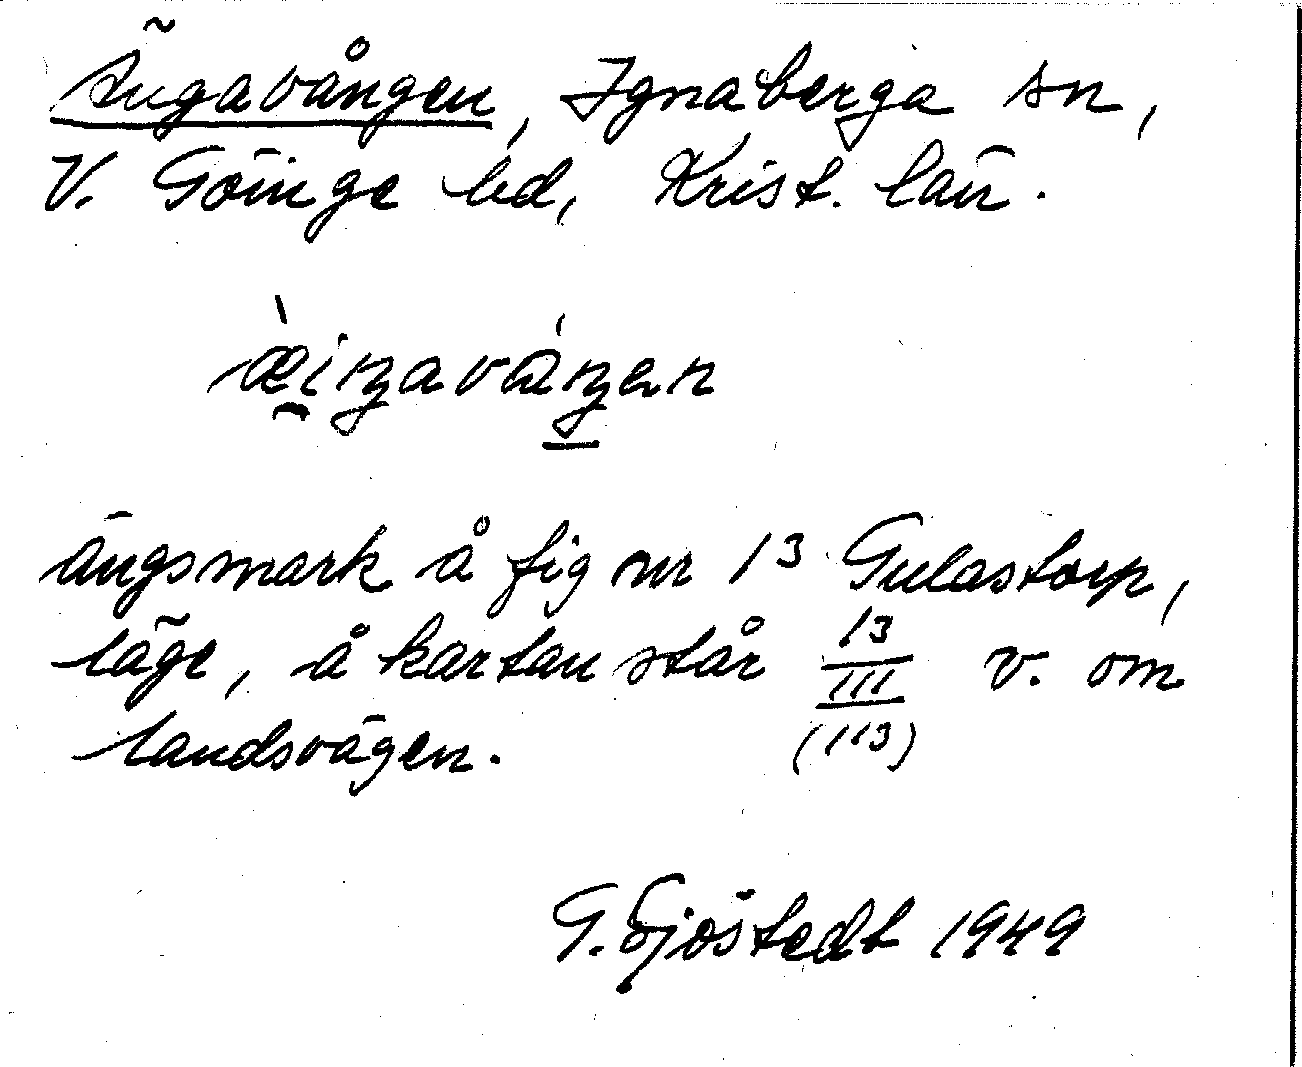 Ängavången, Ignaberga sn,
V. Göinge hd, Krist. län.
æ̀i̯ŋaváŋ̲en
ängsmark å fig nr 13 Gulastorp,
läge, å kartan står 13/III (113) v. om
landsvägen.
G. Sjöstedt 1949